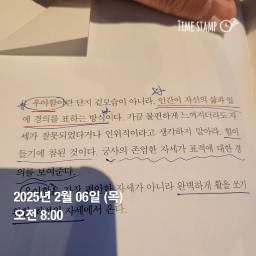 TIME STAMP
우아함이란 단지 겉모습이 아니라, 인간이 자신의 삶과 일
에 경의를 표하는 방식이다. 가끔 불편하게 느껴지더라도 자
세가 잘못되었다거나 인위적이라고 생각하지 말아라. 힘이
들기에 참된 것이다. 궁사의 존엄한 자세가 표적에 대한 경
의를 보여준다.
가장 편안한 자세가 아니라 완벽하게 활을 쏘기
자세에서 온다.
2025년 2월 06일 (목)
오전 8:00